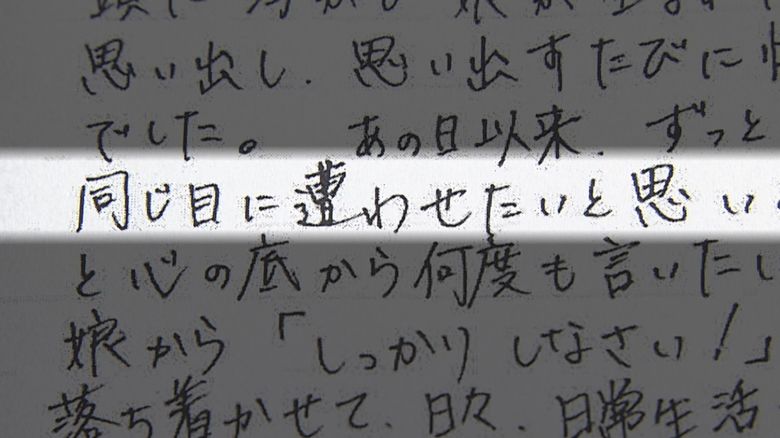 思い出し、思い出すたびに
でした。 あの日以来、ずっと
同じ目に遭わせたいと思い
と心の底から何度も言いたし
娘から「しっかりしなさい!」
落ち着かせて、日々、日常生活